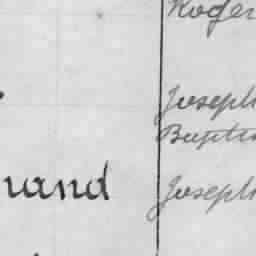 Roger
Joseph
Baptis
nand
Joseph